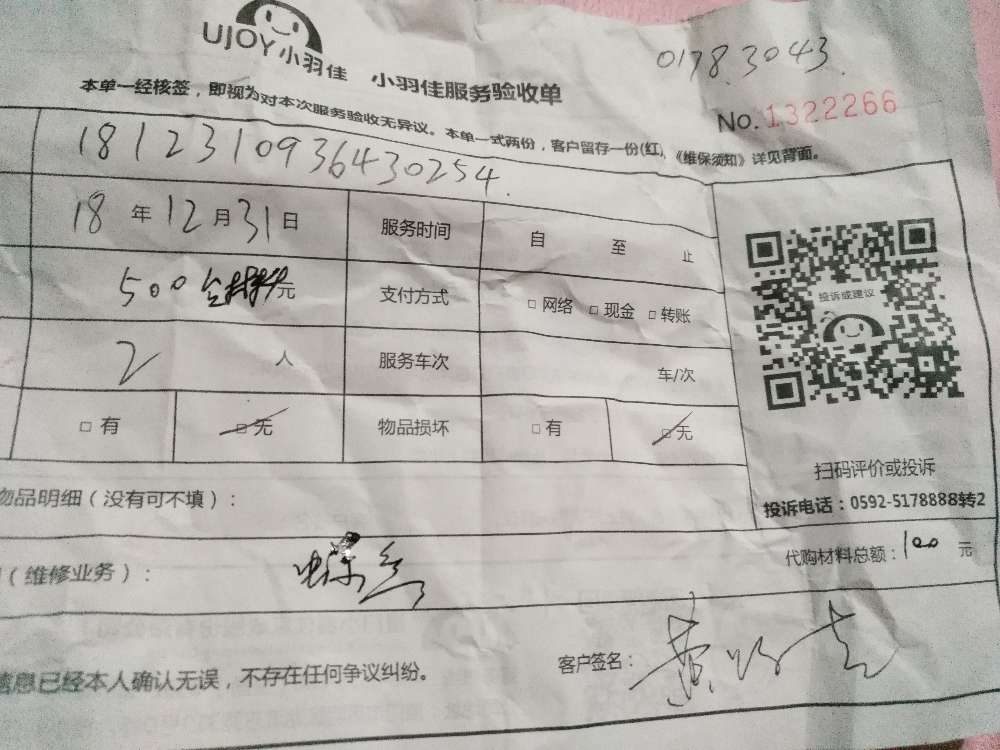 UJOY小羽佳 小羽佳服务验收单
0178.3043.
本单一经核签，即视为对本次服务验收无异议。本单一式两份，客户留存一份(红)，《维保须知》详见背面。
No.1322266
1812310936430254.
18 年 12 月 31 日 服务时间 自 至 止
500 元 支付方式 □ 网络 □ 现金 □ 转账
2 人 服务车次 车/次
□ 有 □ 无 物品损坏 □ 有 □ 无
投诉或建议
扫码评价或投诉
投诉电话：0592-5178888转2
物品明细（没有可不填）：
（维修业务）：
代购材料总额：100 元
信息已经本人确认无误，不存在任何争议纠纷。
客户签名：黄